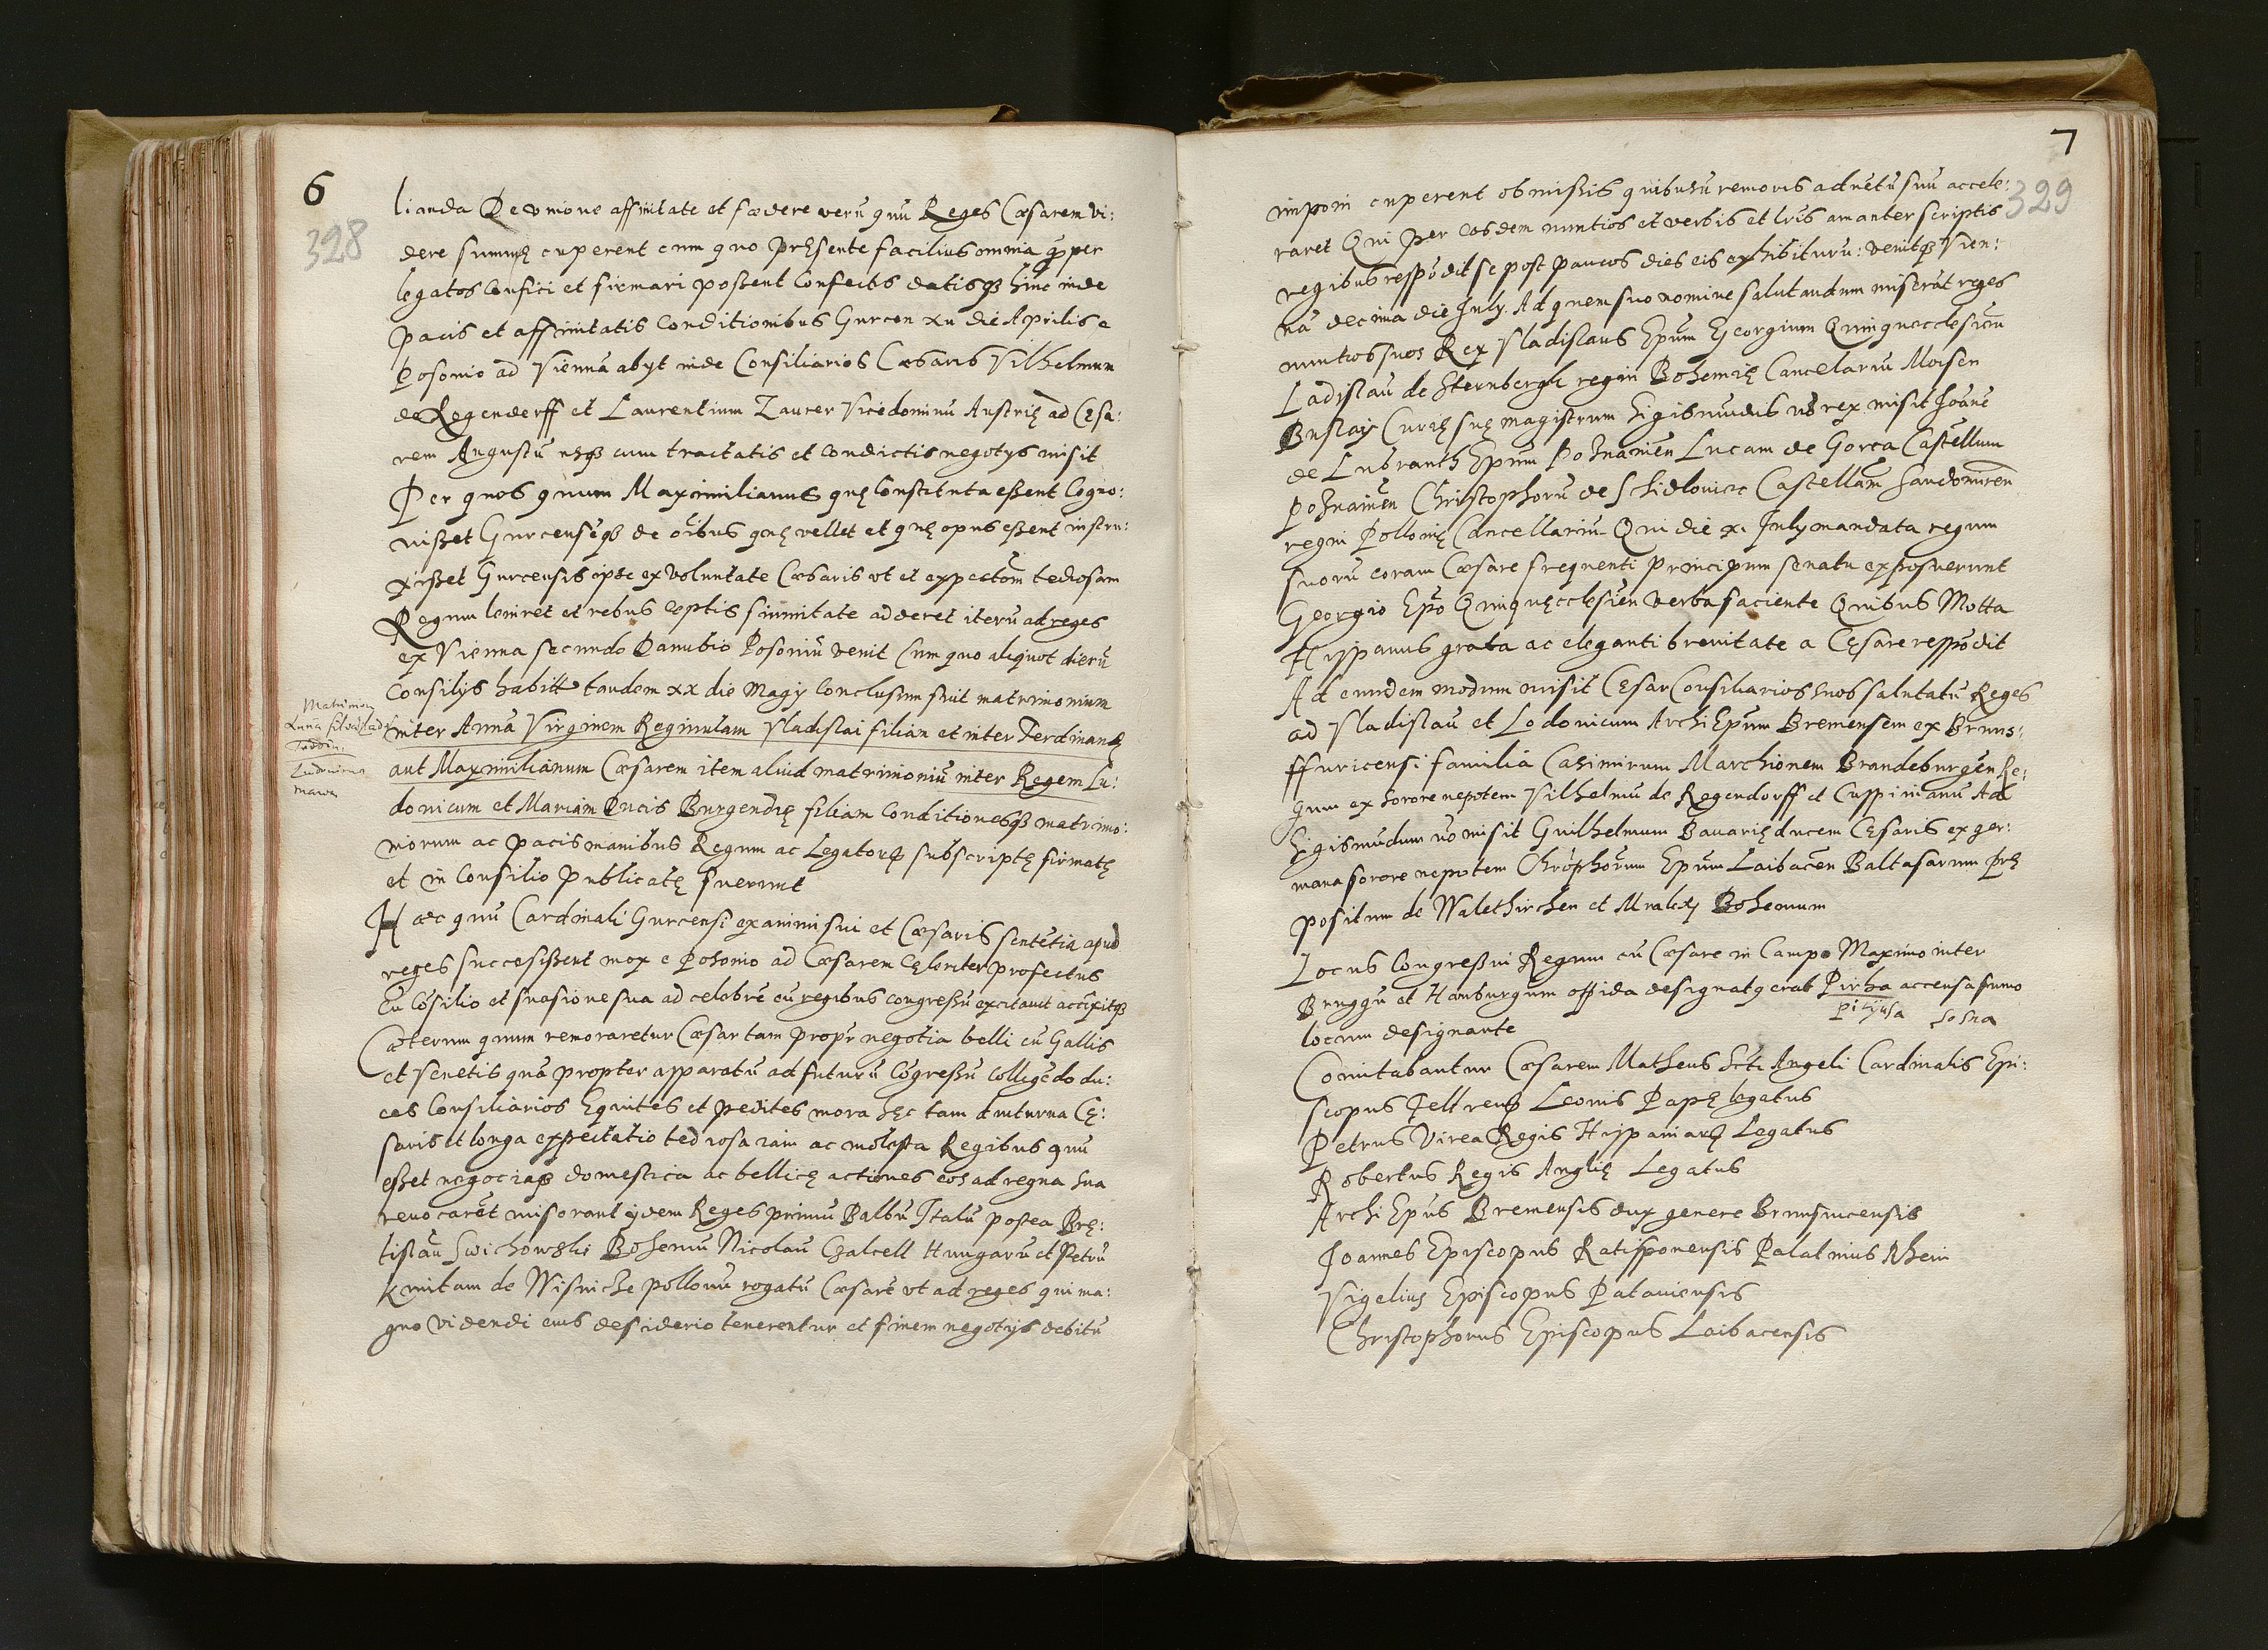 6
328
lianda De vnione affinitate et fœdere verũ quũ Reges Cæsarem vi:
dere summę cuperent cum quo pręsente facilius omnia quam per
legatos confici et firmari possent Confectis datisque hinc inde
Pacis et affinitatis Conditionibus Gurcen xu die Aprilis e
Posonio ad Viennã abyt inde Consiliarios Cæsaris Vilhelmum
de Regenderff et Laurentium Zaurer Vicedominũ Austrię ad Cęsa:
rem Augustũ usque cum tractatis et condictis negotys misit
Per quos quum Maximilianus quę constituta essent Cogno:
uisset Gurcensẽque de oĩbus quę vellet et quę opus essent instru:
xisset Gurcensis ipse ex voluntate Cæsaris vt et expectõm tediosam
Regum leniret et rebus cœptis firmitatẽ adderet iterũ ad reges
ex Vienna secundo Danubio Posoniũ venit Cum quo aliquot dierũ
Consilijs habitt tandem xx die Magij Conclusum fuit matrimonium
Matrimon
Anna fil
Ferdin:
Ludouicus
Maria
inter Annã Virginem Reginulam Vladislai filian et inter Ferdinandum
aut Maximilianum Cæsarem item aliud matrimoniũ inter Regem Lu:
douicum et Mariam Ducis Burgendię filiam Conditionesque matrimo:
niorum ac pacis manibus Regum ac Legatorum subscriptę firmatę
et in Consilio publicatę fuerunt
Hæc quũ Cardinali Gurcensi ex animi sui et Cæsaris sentẽtia apud
reges successissent mox e Posonio ad Cæsarem cęleriter profectus
Eũ Cõsilio et suasione sua ad celebrẽ cũ regibus congressũ excitauit accẽpitque
Cæterum quum remoraretur Cæsar tam propr negotia belli cũ Gallis
et Venetis quã propter apparatũ ad futurũ Cõgressũ colligẽdo du:
ces Consiliarios Equites et pedites mora hęc tam diuturna Cę:
saris et longa expectatio tediosa iam ac molesta Regibus quũ
esset negociaque domestica ac bellicę actiones eos ad regna sua
reuocarẽt miserant ijdem Reges primũ Balbũ Italũ postea Brę:
tislaũ Swichowski Bohemũ Nicolaũ Chalcell Hungarũ et Petrũ
Kmitam de Wisniche pollonũ rogatũ Cæsarẽ vt ad reges qui ma:
gno videndi eius desiderio tenerentur et finem negotijs debitũ
7
329
imponi cuperent obmissis quibusũ remoris aduẽtũ suũ accele:
raret Qui per eosdem nuntios et verbis et lris amanter scriptis
regibus respõdit se post paucos dies eis exhibiturũ: venitque Vien:
nã decima die July. Ad quem suo nomine salutandum miserãt reges
nuntios suos Rex Vladislaus Epum Georgium Quinquecclesien
Ladislaũ de Sternbergk regni Bohemię Cancelariũ Moisen
Buslay Curię suę magistrum Sigismundus ũo rex misit Joãnẽ
de Lubranth Epum Poznanien Lucam de Gorca Castellum
Poznanien Christophorũ de Schidlowiec Castellam Sandomiren
regni Pollonię Cancellariũ Qui die xi July mandata regum
suorũ coram Cæsare frequenti Principum senatu exposuerunt
Georgio Epo Quinquęcclesien verba faciente Quibus Motta
Hispanus grata ac eleganti breuitate a Cęsare respõdit
Ad eundem modum misit Cęsar Consiliarios suos salutatũ Reges
ad Vladislaũ et Lodouicum ArchiEpum Bremensem ex Bruns:
ffuricensi familia Casimirum Marchionem Brandeburgen Re:
gum ex sorore nepotem Vilhelmũ de Regendorff et Cuspinianũ Ad
Sigismũdum ũo misit Guilhelmum Bauarię ducem Cęsaris ex ger:
mana sorore nepotem Chrõphorum Epum Laibacen Baltasarum prę
positum de Walethirchen et Mralesy Bohemum
Locus Congressui Regum cũ Cæsare in Campo Maximo inter
Bruggũ et Hamburgum oppida designatus erat Pirha accensa fumo
pitijusa sosna
locum designante
Comitabantur Cæsarem Matheus Scti Angeli Cardinalis Epi:
scopus
Leonis Papę legatus
Petrus Virea Regis Hispaniarum Legatus
Robertus Regis Anglię Legatus
ArchiEpus Bremensis dux genere Brunsuicensis
Joannes Episcopus Ratisponensis Palatinus Rheni
Vigelius Episcopus Patauiensis
Christophorus Episcopus Laibacensis